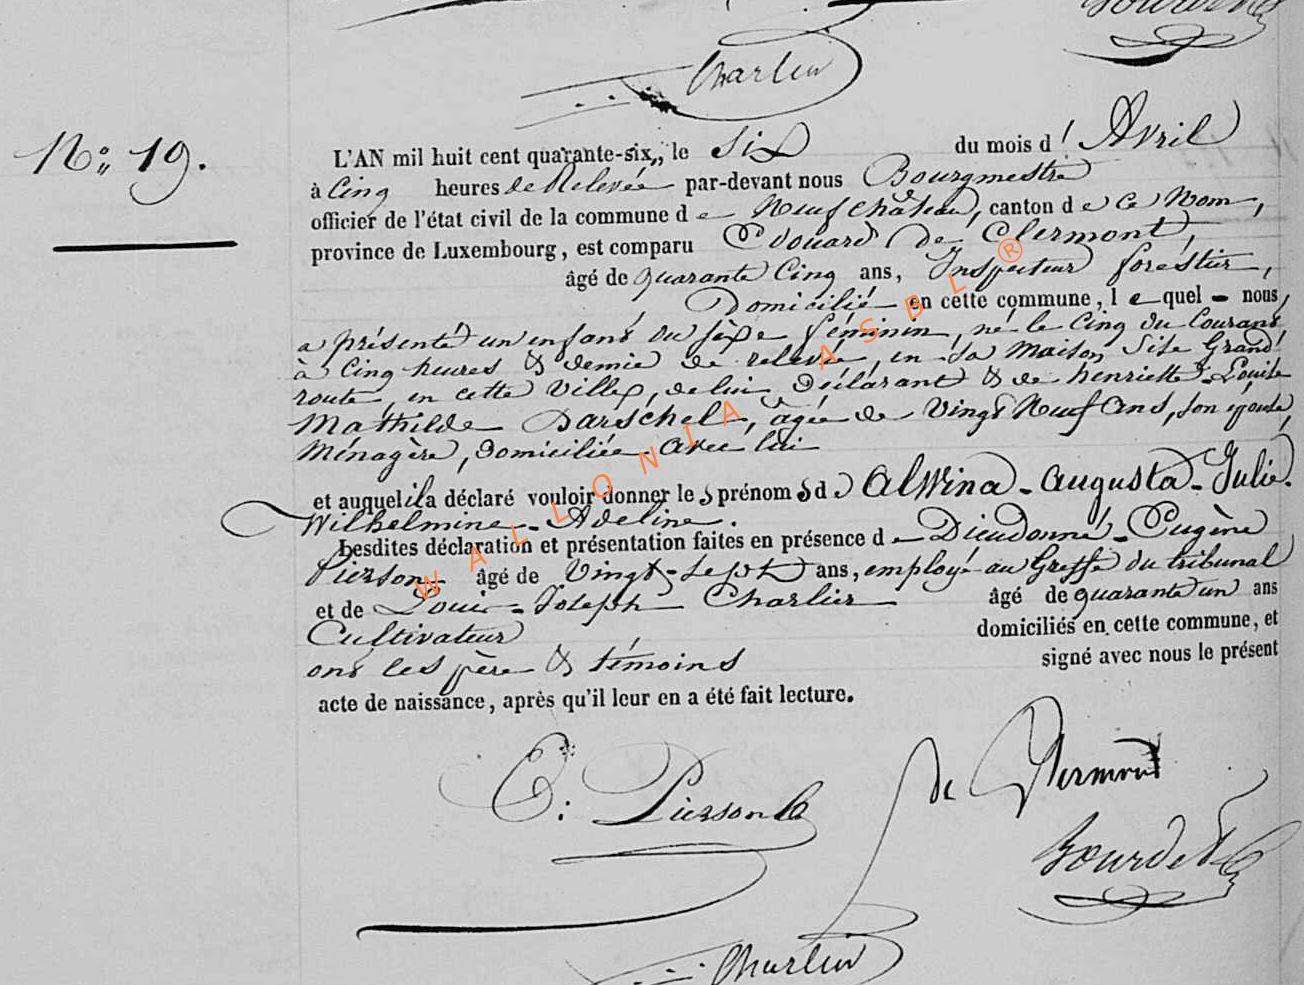 Charlier
N° 19.
L'AN mil huit cent quarante-six, le Six du mois d' Avril
à Cinq heures de Relevée par-devant nous Bourgmestre
officier de l'état civil de la commune de Neufchâteau, canton de ce Nom,
province de Luxembourg, est comparu Edouard de Clermont,
âgé de quarante Cinq ans, Inspecteur forestier,
Domicilié en cette commune, lequel nous
a présenté un enfant du sèxe féminin, né le Cinq du Courant,
à Cinq heures & demie de relevée, en sa Maison Sise Grand'
route, en cette Ville, de lui Déclarant & de henriette Louise
Mathilde Darschel, âgée de Vingt Neuf ans, son épouse,
Ménagère, domiciliée avec lui
et auquel il a déclaré vouloir donner les prénoms d' Alwina - Augusta - Julie -
Wilhelmine - Adeline.
Lesdites déclaration et présentation faites en présence de Dieudonné - Eugène
Pierson âgé de Vingt-Sept ans, employé au Greffe du tribunal
et de Louis - Joseph Charlier âgé de quarante un ans
Cultivateur domiciliés en cette commune, et
ont les père & témoins signé avec nous le présent
acte de naissance, après qu'il leur en a été fait lecture.
E: Pierson de Clermont
Charlier
WALLONIA ASBL ®